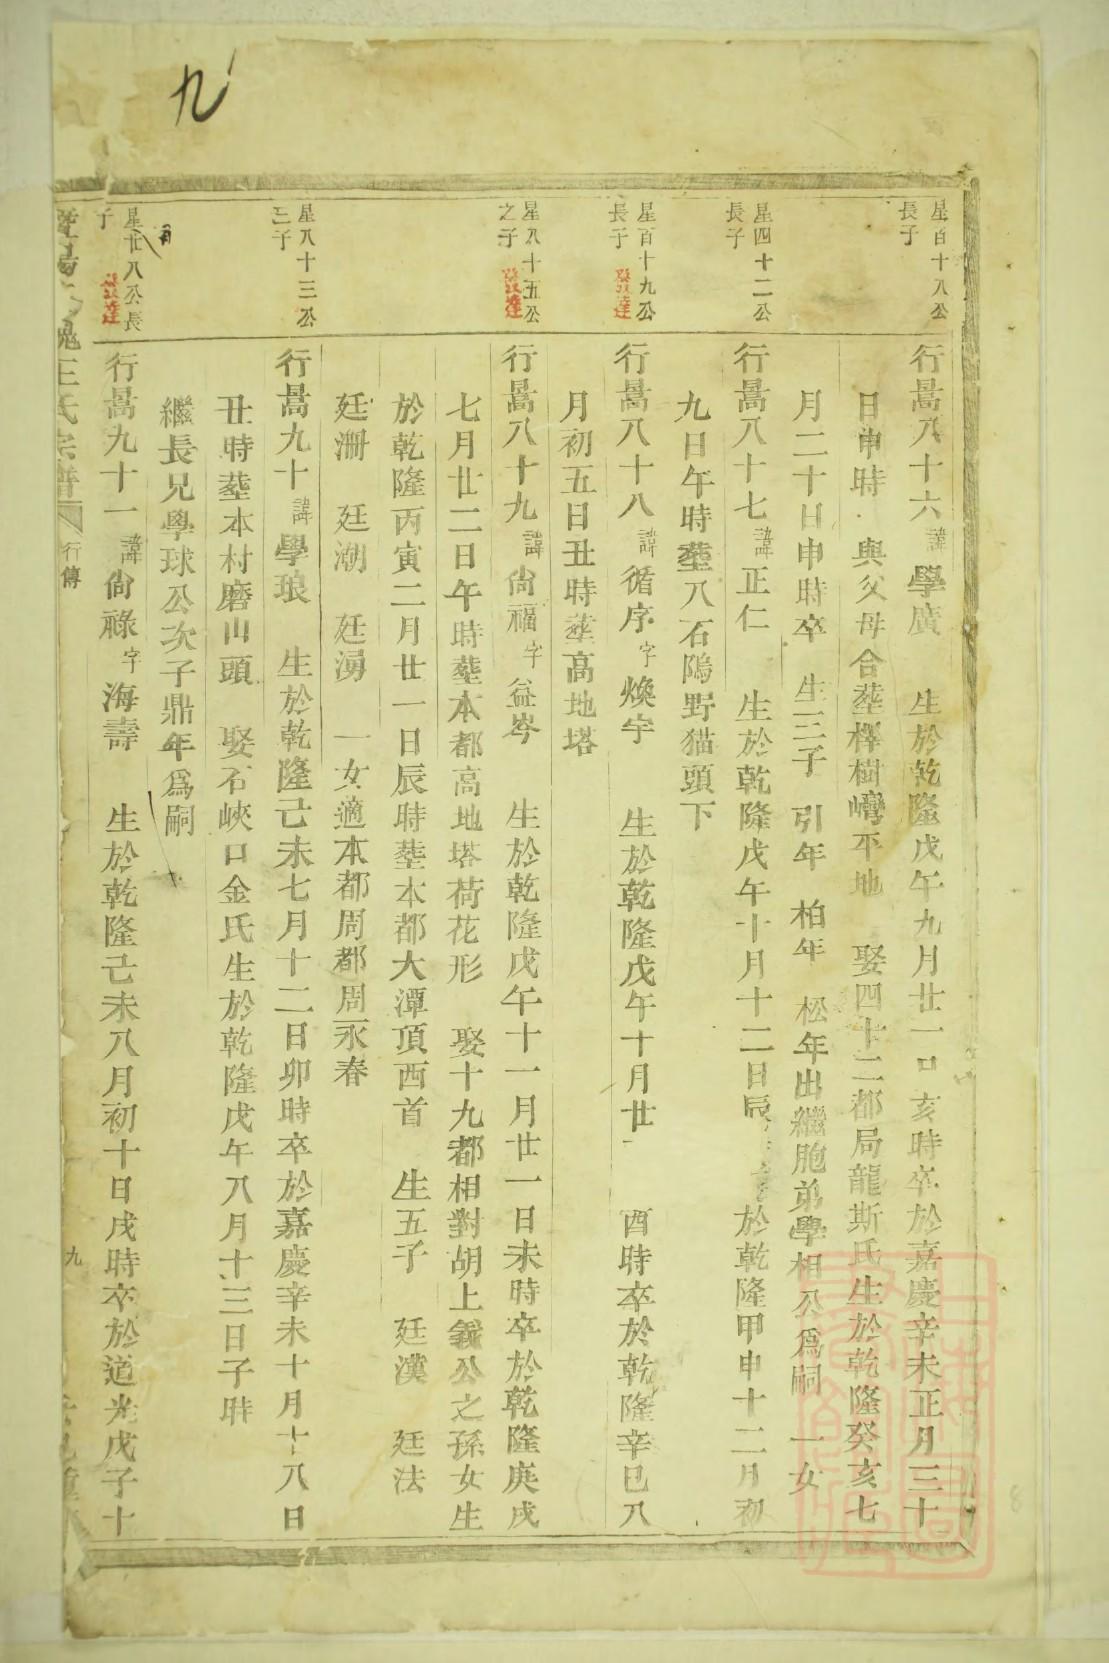 九
星百十八公
長子
行暠八十六諱學廣 生於乾隆戊午九月廿一日亥時卒於嘉慶辛未正月三十
日申時 與父母合塟檡樹嶹平地 娶四十二都局龍斯氏生於乾隆癸亥七
月二十日申時卒 生三子 引年 柏年 松年出繼胞弟學相公爲嗣 一女
星四十二公
長子
行暠八十七諱正仁 生於乾隆戊午十月十二日辰 於乾隆甲申十二月初
九日午時塟八石隖野猫頭下
星百十九公
長子 發達
行暠八十八諱循序字煥宇 生於乾隆戊午十月廿 酉時卒於乾隆辛巳八
月初五日丑時塟高地塔
星八十五公
之子 發達
行暠八十九諱尙福字益岑 生於乾隆戊午十一月廿一日未時卒於乾隆庚戌
七月廿二日午時塟本都高地塔荷花形 娶十九都相對胡上義公之孫女生
於乾隆丙寅二月廿一日辰時塟本都大潭頂西首 生五子 廷漢 廷法
廷淵 廷潮 廷湧 一女適本都周都周永春
星八十三公
三子
行暠九十諱學琅 生於乾隆己未七月十二日卯時卒於嘉慶辛未十月十八日
丑時塟本村磨山頭 娶石峽口金氏生於乾隆戊午八月十三日子時
繼長兄學球公次子鼎年爲嗣
星廿八公長
子 發達
行暠九十一諱尙祿字海壽 生於乾隆己未八月初十日戌時卒於道光戊子十
王氏宗譜 行傳 九